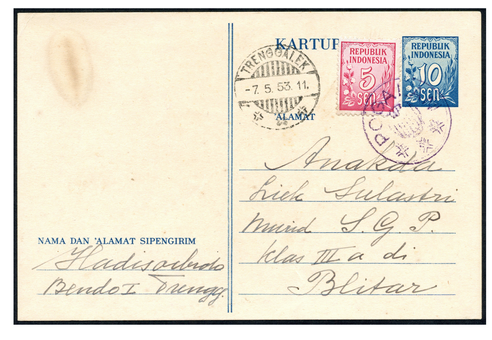 KARTUP
REPUBLIK
INDONESIA
5
SEN
REPUBLIK
INDONESIA
10
SEN
TRENGGALEK
-7.5.53.11.
ALAMAT
Anakda
Liek Sulastri
Murid S.G.P.
Klas III a di
Blitar
NAMA DAN 'ALAMAT SIPENGIRIM
Hadisoebroto
Bendo I Trengg.